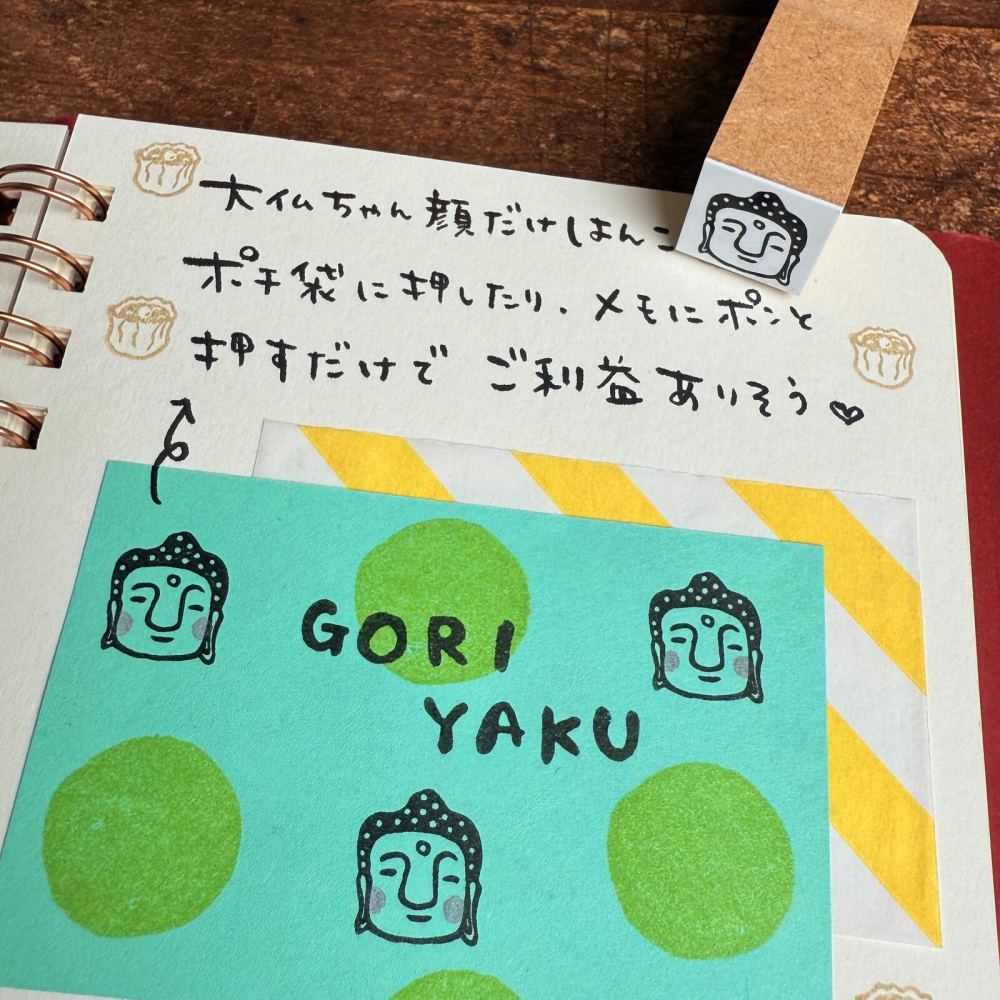 大仏ちゃん顔だけはんこ
ポチ袋に押したり、メモにポンと
押すだけで ご利益ありそう♡
GORI
YAKU